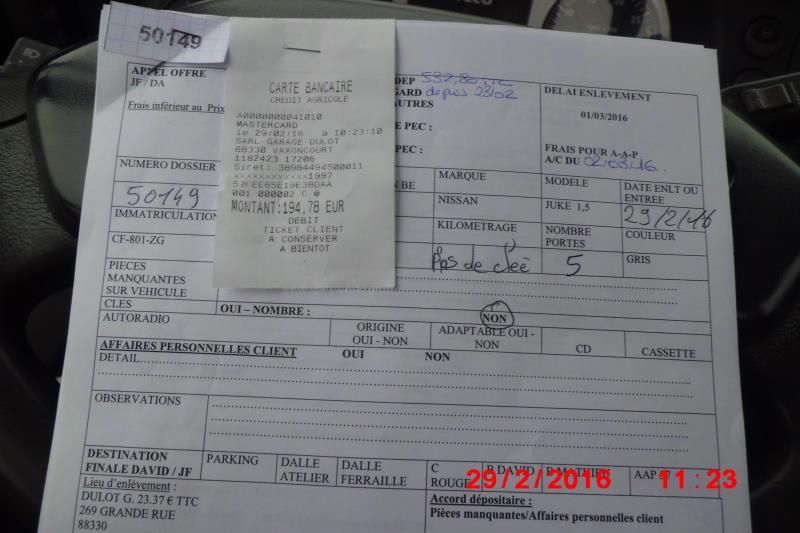 50149
APPEL OFFRE
JF / DA
Frais inférieur au Prix
CARTE BANCAIRE
CREDIT AGRICOLE
A0000000041010
MASTERCARD
le 29/02/16 a 10:23:10
SARL GARAGE DULOT
88330 VAXONCOURT
1182423 17206
Siret: 38984494500011
xxxxxxxxxxxx1997
57FEE65E19E38DAA
001 000002 C @
MONTANT:194,78 EUR
DEBIT
TICKET CLIENT
A CONSERVER
A BIENTOT
DEP 532,80 TTC
GARD depuis 23/02
AUTRES
E PEC :
PEC :
DELAI ENLEVEMENT
01/03/2016
FRAIS POUR A-A-P
A/C DU 02/03/16.
NUMERO DOSSIER
50149
BE
MARQUE
NISSAN
MODELE
JUKE 1,5
DATE ENLT OU
ENTREE
29/2/16
IMMATRICULATION
CF-801-ZG
KILOMETRAGE
Pas de cleè
NOMBRE
PORTES
5
COULEUR
GRIS
PIECES
MANQUANTES
SUR VEHICULE
CLES
OUI – NOMBRE :
NON
AUTORADIO
ORIGINE
OUI - NON
ADAPTABLE OUI -
NON
CD
CASSETTE
AFFAIRES PERSONNELLES CLIENT OUI NON
DETAIL
OBSERVATIONS
DESTINATION
FINALE DAVID / JF
PARKING
DALLE
ATELIER
DALLE
FERRAILLE
C
ROUGE
P DAVID
P MATHIEU
AAP
29/2/2016 11:23
Lieu d'enlèvement :
DULOT G. 23.37 € TTC
269 GRANDE RUE
88330
Accord dépositaire :
Pièces manquantes/Affaires personnelles client